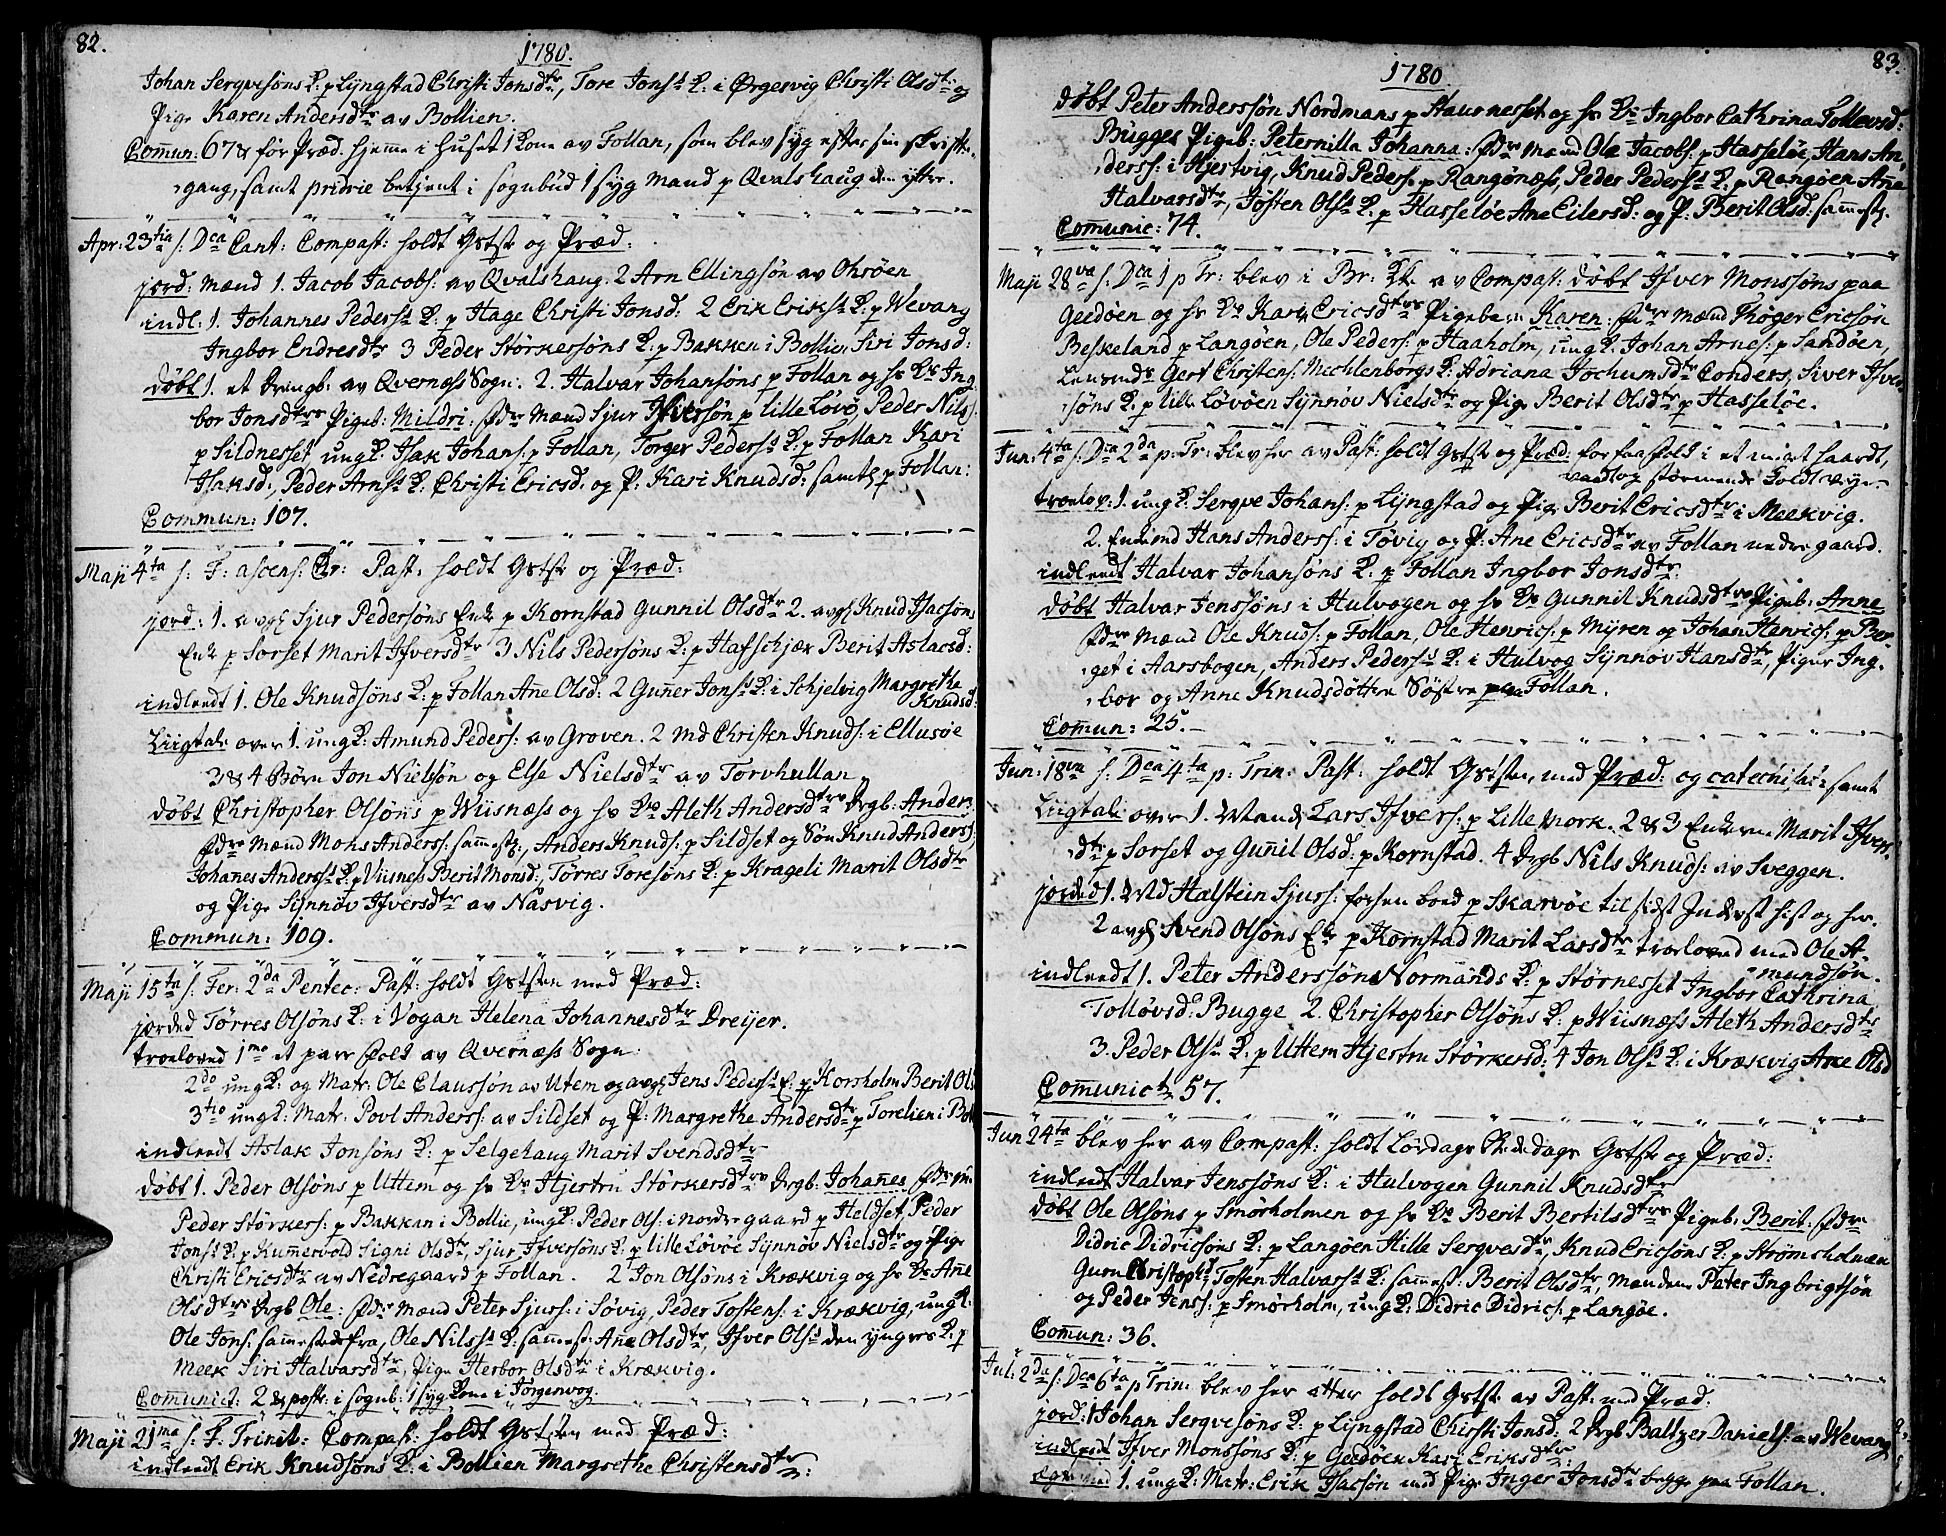 82.
1780.
Johan Sergvesøns K: p Lÿngstad Christi Jonsdtr, Tore Jonss K: i Ørgesvig Christi Olsdtr og
Pige Karen Andersdtr av Bollien.
Comun: 67 & før Præd: hjeme i huset 1 Kone av Follan, som blev syg efter sin skrifte-
gang, samt pridie betjent i sognebud 1 syg Mand p Qvalshaug den
Apr: 23tia s: Dca Cant: Compast: holdt Gstst og Præd:
jord: Mænd 1. Jacob Jacobs: av Qvalshaug. 2 Arn Ellingsøn av Ohrøen
indl: 1. Johannes Pederss K: p Hage Christi Jonsd: 2 Erik Erikss K: p Wevang
Ingbor Endresdtr 3 Peder Størkersøns K: p Bakken i Bollien Siri Jonsd:
døbt 1. et Drengb: av Qvernæss Sogn: 2. Halvar Johansøns p Follan og hs Ks Ing-
bor Jonsdtrs Pigeb: Mildri: Fdre Mænd Sjur Ifversøn p lille Løvø, Peder Nils:
p Sildnesset ungK: Isak Johans: p Follan, Torger Pederss K: p Follan Kari
Isaksd:, Peder Arnss K: Christi Ericsd: og P: Kari Knudsd: samtl p Follan:
Commun: 107.
Maji 4ta s: F: ascens: Chr: Past: holdt Gstst og Præd:
jord: 1. avgl Sjur Pedersøns Enke p Kornstad Gunnil Olsdtr 2. avgl Knud Isacsøns
Enke p Sorset Marit Ifversdtr 3 Nils Pedersøns K: p Hafschjær Berit Aslacsd:
indleedt 1. Ole Knudsøns K: p Follan Ane Olsd: 2 Guner Jonss K: i Schjelvig Margrethe
Knudsd:
Liigtale over 1. ungK: Amund Peders: av Groven. 2 Md Christen Knuds: i Ellusøe
3 & 4 Børn Jon Nielsøn og Else Nielsdtr av Torvhullan
døbt Christopher Olsøns p Wiisnæss og hs Ks Aleth Andersdtrs Drgb: Anders:
Fdre Mænd Mons Anderss: samestz:, Anders Knuds: p Sildset og Søn Knud Anderss,
Johanes Anderss K: p Viisness Berit Monsd:, Tørres Toresøns K: p Krageli Marit Olsdtr
og Pige Sÿnnøv Ifversdtr av Nasvig.
Commun: 109.
Maji 15ta s: Fer: 2da Pentec: Past: holdt Gststen med Præd:
jorded Tørres Olsøns K: i Vogan Helena Johannesdtr Dreÿer.
troeloved 1mo et parr Folk av Qvernæss Sogn:
2do ungK: og Matr: Ole Claussøn av Utem og avgl Jens Pederss E: p Korsholm Berit Ols
3tio ungK: Matr: Povl Anderss: av Sildset og P: Margrethe Andersdtr p Torelien i Bol
indleedt Aslak Jonsøns K: p Selgehaug Marit Svendsdtr
døbt 1. Peder Olsøns p Uttem og hs Ks Hjertru Størkersdtrs Drgb: Johanes Fdre M:
Peder Størkers: p Bakkan i Bollie, ungK: Peder Ols: i Nordregaard p Heldset, Peder
Jonss K: p Kumervold Signi Olsdtr, Sjur Ifversøns K: p lille Løvøe Sÿnnøv Nielsdtr og Pige
Christi Ericsdtr av Nedregaard p Follan. 2 Jon Olsøns i Krækvig og hs Ks Ane
Olsdtrs Drgb Ole: Fdre Mænd Peter Sjurs: i Søvig, Peder Tostens: i Krækvig, ungK:
Ole Jons: samesteds fra, Ole Nilss K: samest: Ane Olsdtr, Ifver Olss den yngres K: p
Meek Siri Halvarsdtr, Pige Herbor Olsdtr i Krækvig.
Comunict: 2 & post: i sognb: 1 syg Kone i Jørgenvog.
Maji 21ma s: F: Trinit: Compast: holdt Gststen med Præd:
indleedt Erik Knudsøns K: i Bollien Margrethe Christensdtr:
83.
1780
døbt Peter Anderssøn Nordmans p Staurnesset og hs Ks Ingbor Cathrina Tollevsd:
Bugges Pigeb: Peternilla Johanna: Fdre Mænd Ole Jacobs: p Hasseløe, Hans An-
derss: i Hjestvig, Knud Peders: p Rangønæss, Peder Pederss K: p Rangøen Ane
Halvarsdtr, Josten Olss K: p Hasseløe Ane Eilersd: og P: Berit Olsd: samestz.
Comunic: 74.
Maji 28va s: Dca 1 p Tr: blev i Br: K: av Compast: døbt Ifver Monssøns paa
Geedøen og hs Ks Kari Ericsdtrs Pigebarn Karen: Fdre Mænd Thøger Ericsøn
Beskeland p Langøen, Ole Peders: p Haaholm, ungK: Johan Arnes: p Sandøen,
Lensmds Gert Christens: Mechlenborgs K: Adriana Jochumsdtr Conders, Siver Ifver-
søns K: p lille Løvøen Sÿnnøv Nielsdtr og Pige Berit Olsdtr p Hasseløe.
Jun: 4ta s: Dca 2da p: Tr: blev her av Past: holdt Gstst og Præd: for faa folk i et meget haardt,
vaadt og stormende Koldt veyr
troelov: 1. ungK: Sergve Johans: p Lÿngstad og Pige Berit Ericsdtr i Meekvig.
2. Enkmd Hans Anderss: i Tøvig og P: Ane Ericsdtr av Follan nedre gaard.
indleedt Halvar Johansøns K: p Follan Ingbor Jonsdtr:
døbt Halvar Jenssøns i Hulvogen og hs Ks Gunnil Knudsdtrs Pigeb: Anne
Fdre Mænd Ole Knuds: p Follan, Ole Henrics: p Mÿren og Johan Henrics: p Ber-
get i Aarsbogen, Anders Pederss K: i Hulvog Sÿnnøv Hansdtr, Piger Ing-
bor og Anne Knudsdøttre Søstre paa Follan.
Comun: 25.
Jun: 18va s: Dca 4ta p: Trin: Past: holdt Gststen med Præd: og catechisat: samt
Liigtale over 1. Mand Lars Ifvers: p lille Vork. 2 & 3 Enkerne Marit Ifvers-
dtr p Sorset og Gunil Olsd: p Kornstad. 4 Drgb Nils Knuds: av Sveggen.
jorded 1. Md Halstein Sjurs: forhen boed p Skarvøe til sidst Inderst hist og her.
2 avgl Svend Olsøns Ee p Kornstad Marit Larsdtr troeloved med Ole A-
mundsøn.
indleedt 1. Peter Anderssøn Normands K: p Størnesset Ingbor Cathrina
Tolløvsd Bugge 2. Christopher Olsøns K: p Wiisnæss Aleth Andersdtr
3. Peder Olss K: p Uttem Hjertru Størkersd: 4 Jon Olss K: i Krækvig Ane Olsd
Comunict 57.
Jun 24ta blev her av Compast: holdt Lørdags St. Hs dags Gstst og Præd:
indleedt Halvar Jenssøns K: i Hulvogen Gunnil Knudsdtr
døbt Ole Olsøns p Smørholmen og hs Ks Berit Bertilsdtrs Pigeb: Berit: Fdre
Didric Didricsøns K: p Langøen Hille Sergvesdtr, Knud Ericsøns K: p Strømsholmen
Guru Christophd, Tosten Halvarss K: samest: Berit Olsdtr, Mændene Peter Ingbrigtsøn
og Peder Jenss: p Smørholm, ungK: Didric Didrics: p Langøe.
Comun: 36.
Jul: 2da s: Dca 6ta p Trin: blev her etter holdt Gstst av Past: med Præd:
jord: 1 Johan Sergvesøns K: p Lÿngstad Christi Jonsd: 2 Drgb Baltzer Daniels: av Wevang
indleedt Ifver Monssøns K: p Geedøen Kari Eriksdtr:
1. ungK: Matr: Erik Isacsøn med Pige Inger Jonsdtr begge paa Follan.